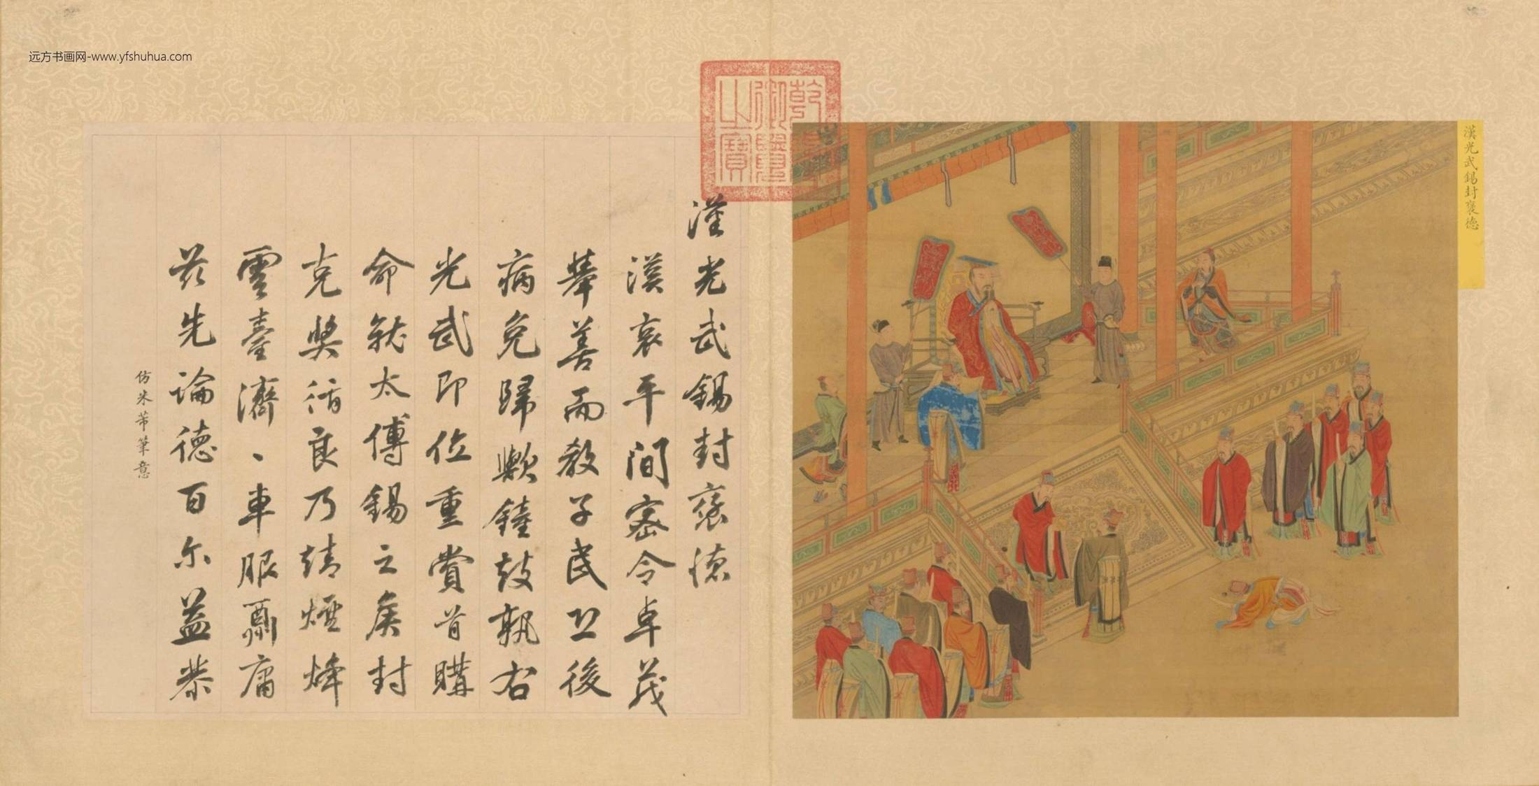 远方书画网-www.yfshuhua.com
漢光武錫封襃德
乾隆御覽之寶
漢光武錫封襃德
漢哀平間密令卓茂
舉善而教子民又後
病免歸歟鐘鼓孰右
光武即位重賞首購
命就太傅錫之侯封
克奬循良乃靖煙烽
雲臺濟丶車服肅庸
茲先論德百尔益恭
仿米芾筆意